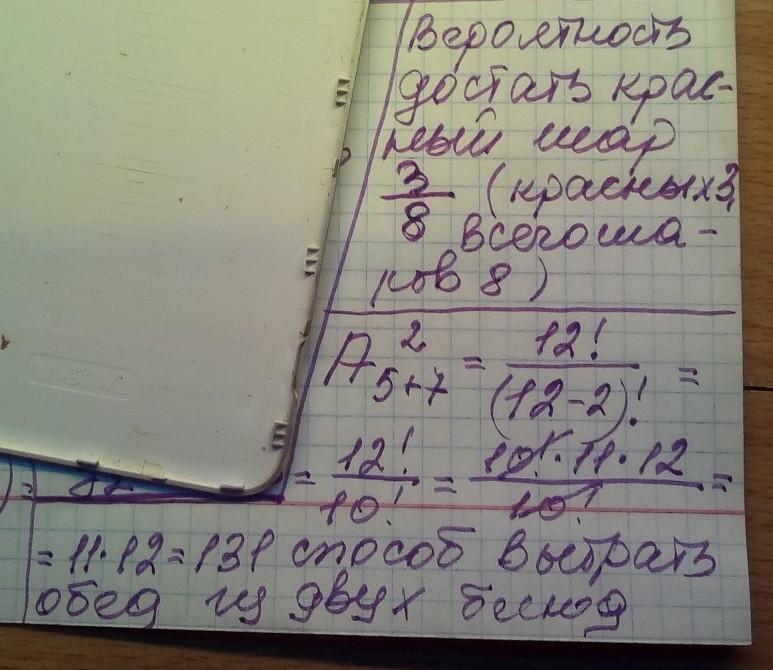 Вероятность
достать крас-
ный шар
3/8 (красных 3,
всего ша-
ров 8)
A²₅₊₇ = 12!/(12-2)! =
= 12!/10! = 10!·11·12/10! =
= 11·12 = 131 способ выбрать
обед из двух блюд